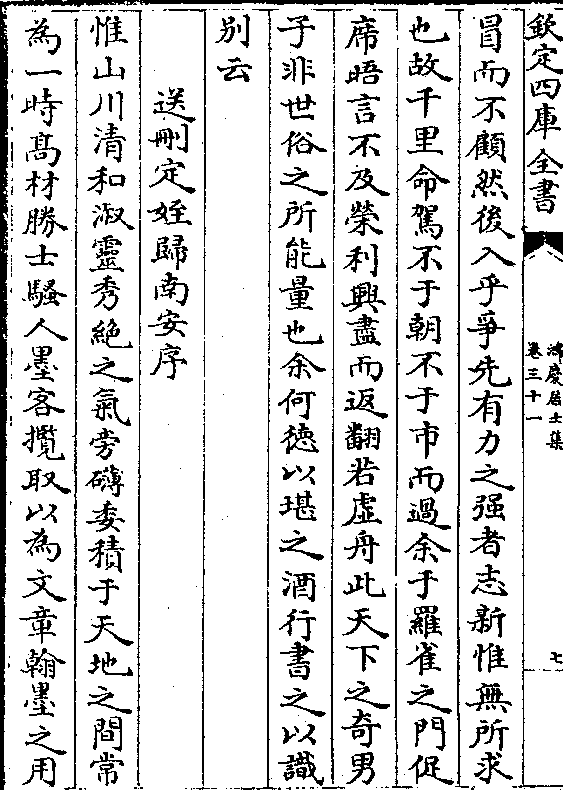 欽定四庫全書
鴻慶居士集
卷三十一
七
冒而不顧然後入乎爭先有力之强者志新惟無所求
也故千里命駕不于朝不于市而過余于羅雀之門促
席晤言不及榮利興盡而返翻若虚舟此天下之奇男
子非世俗之所能量也余何徳以堪之酒行書之以識
别云
送刪定姪歸南安序
惟山川清和淑靈秀絶之氣旁礴委積于天地之間常
為一時髙材勝士騷人墨客攬取以為文章翰墨之用